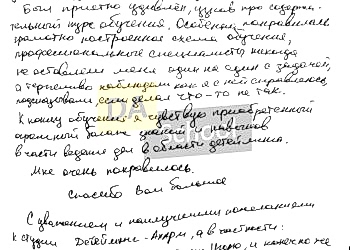 Был приятно удивлён, узнав про содержа-
тельный курс обучения. Особенно понравилась
грамотно построенная схема обучения,
профессиональные специалисты никогда
не оставляли меня один на один с задачей,
а терпеливо наблюдали как я с ней справляюсь,
подсказывали, если делал что-то не так.
К концу обучения чувствую приобретённый
огромный багаж знаний и навыков
в части ведения дел в области детейлинга.
Мне очень понравилось.
Спасибо Вам большое
С уважением и наилучшими пожеланиями
к студии Детейлинг-
, и конечно же